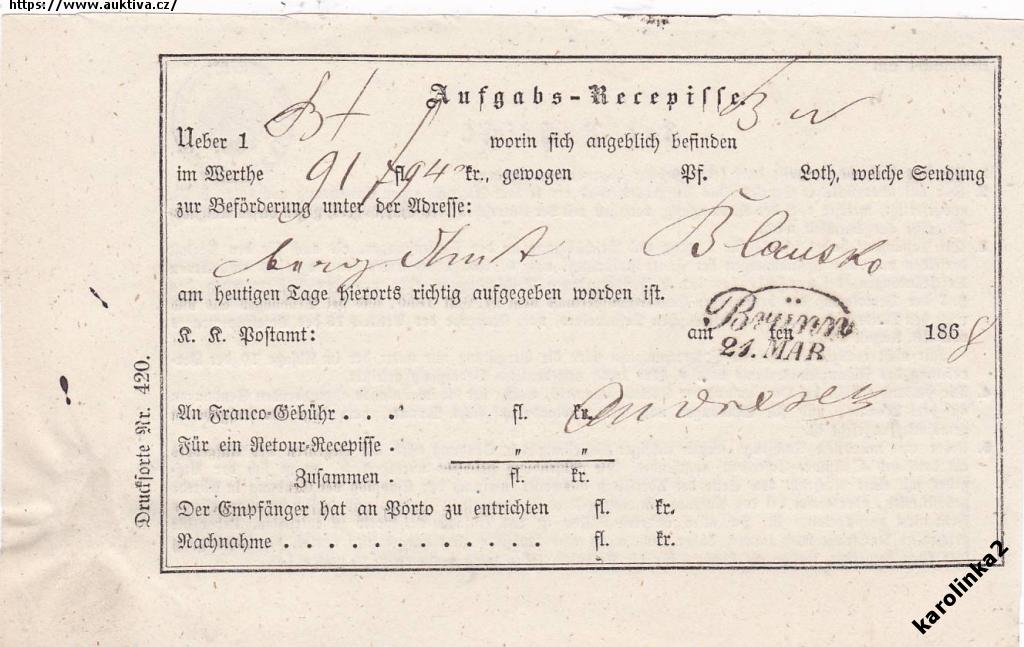 https://www.auktiva.cz/
Aufgabs-Recepisse.
Ueber 1 worin sich angeblich befinden
im Werthe 91 fl. 94 kr., gewogen Pf. Loth, welche Sendung
zur Beförderung unter der Adresse:
Blansko
am heutigen Tage hierorts richtig aufgegeben worden ist.
K. K. Postamt: am ten 1868
Brünn
21. MAR
An Franco-Gebühr . . . fl. kr.
Für ein Retour-Recepisse . " "
Zusammen . fl. kr.
Der Empfänger hat an Porto zu entrichten fl. kr.
Nachnahme . . . . . . . . . . . . . fl. kr.
Drucksorte Nr. 420.
karolinka2